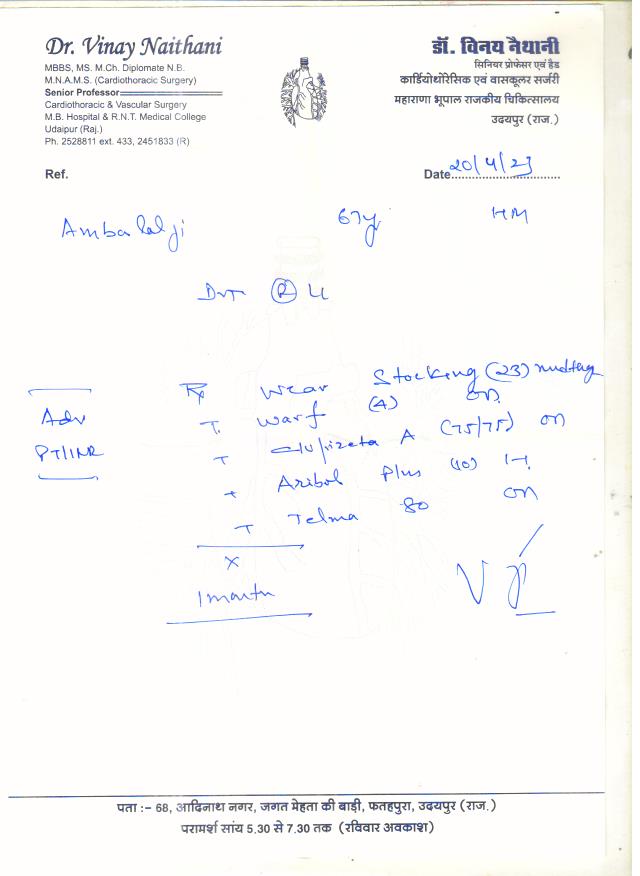 Dr. Vinay Naithani
MBBS, MS. M.Ch. Diplomate N.B.
M.N.A.M.S. (Cardiothoracic Surgery)
Senior Professor
Cardiothoracic & Vascular Surgery
M.B. Hospital & R.N.T. Medical College
Udaipur (Raj.)
Ph. 2528811 ext. 433, 2451833 (R)
डॉ. विनय नैथानी
सिनियर प्रोफेसर एवं हैड
कार्डियोथोरेसिक एवं वासकूलर सर्जरी
महाराणा भूपाल राजकीय चिकित्सालय
उदयपुर (राज.)
Ref.
Date 20/4/23
Ambalalji 67y HM
DVT (R) LL
Rx Wear Stocking (23)
T. Warf (4) on
T A (75/75) on
T Plus (10)
T Telma 80 on
x
1 month
Adv
PT/INR
पता :– 68, आदिनाथ नगर, जगत मेहता की बाड़ी, फतहपुरा, उदयपुर (राज.)
परामर्श सांय 5.30 से 7.30 तक (रविवार अवकाश)